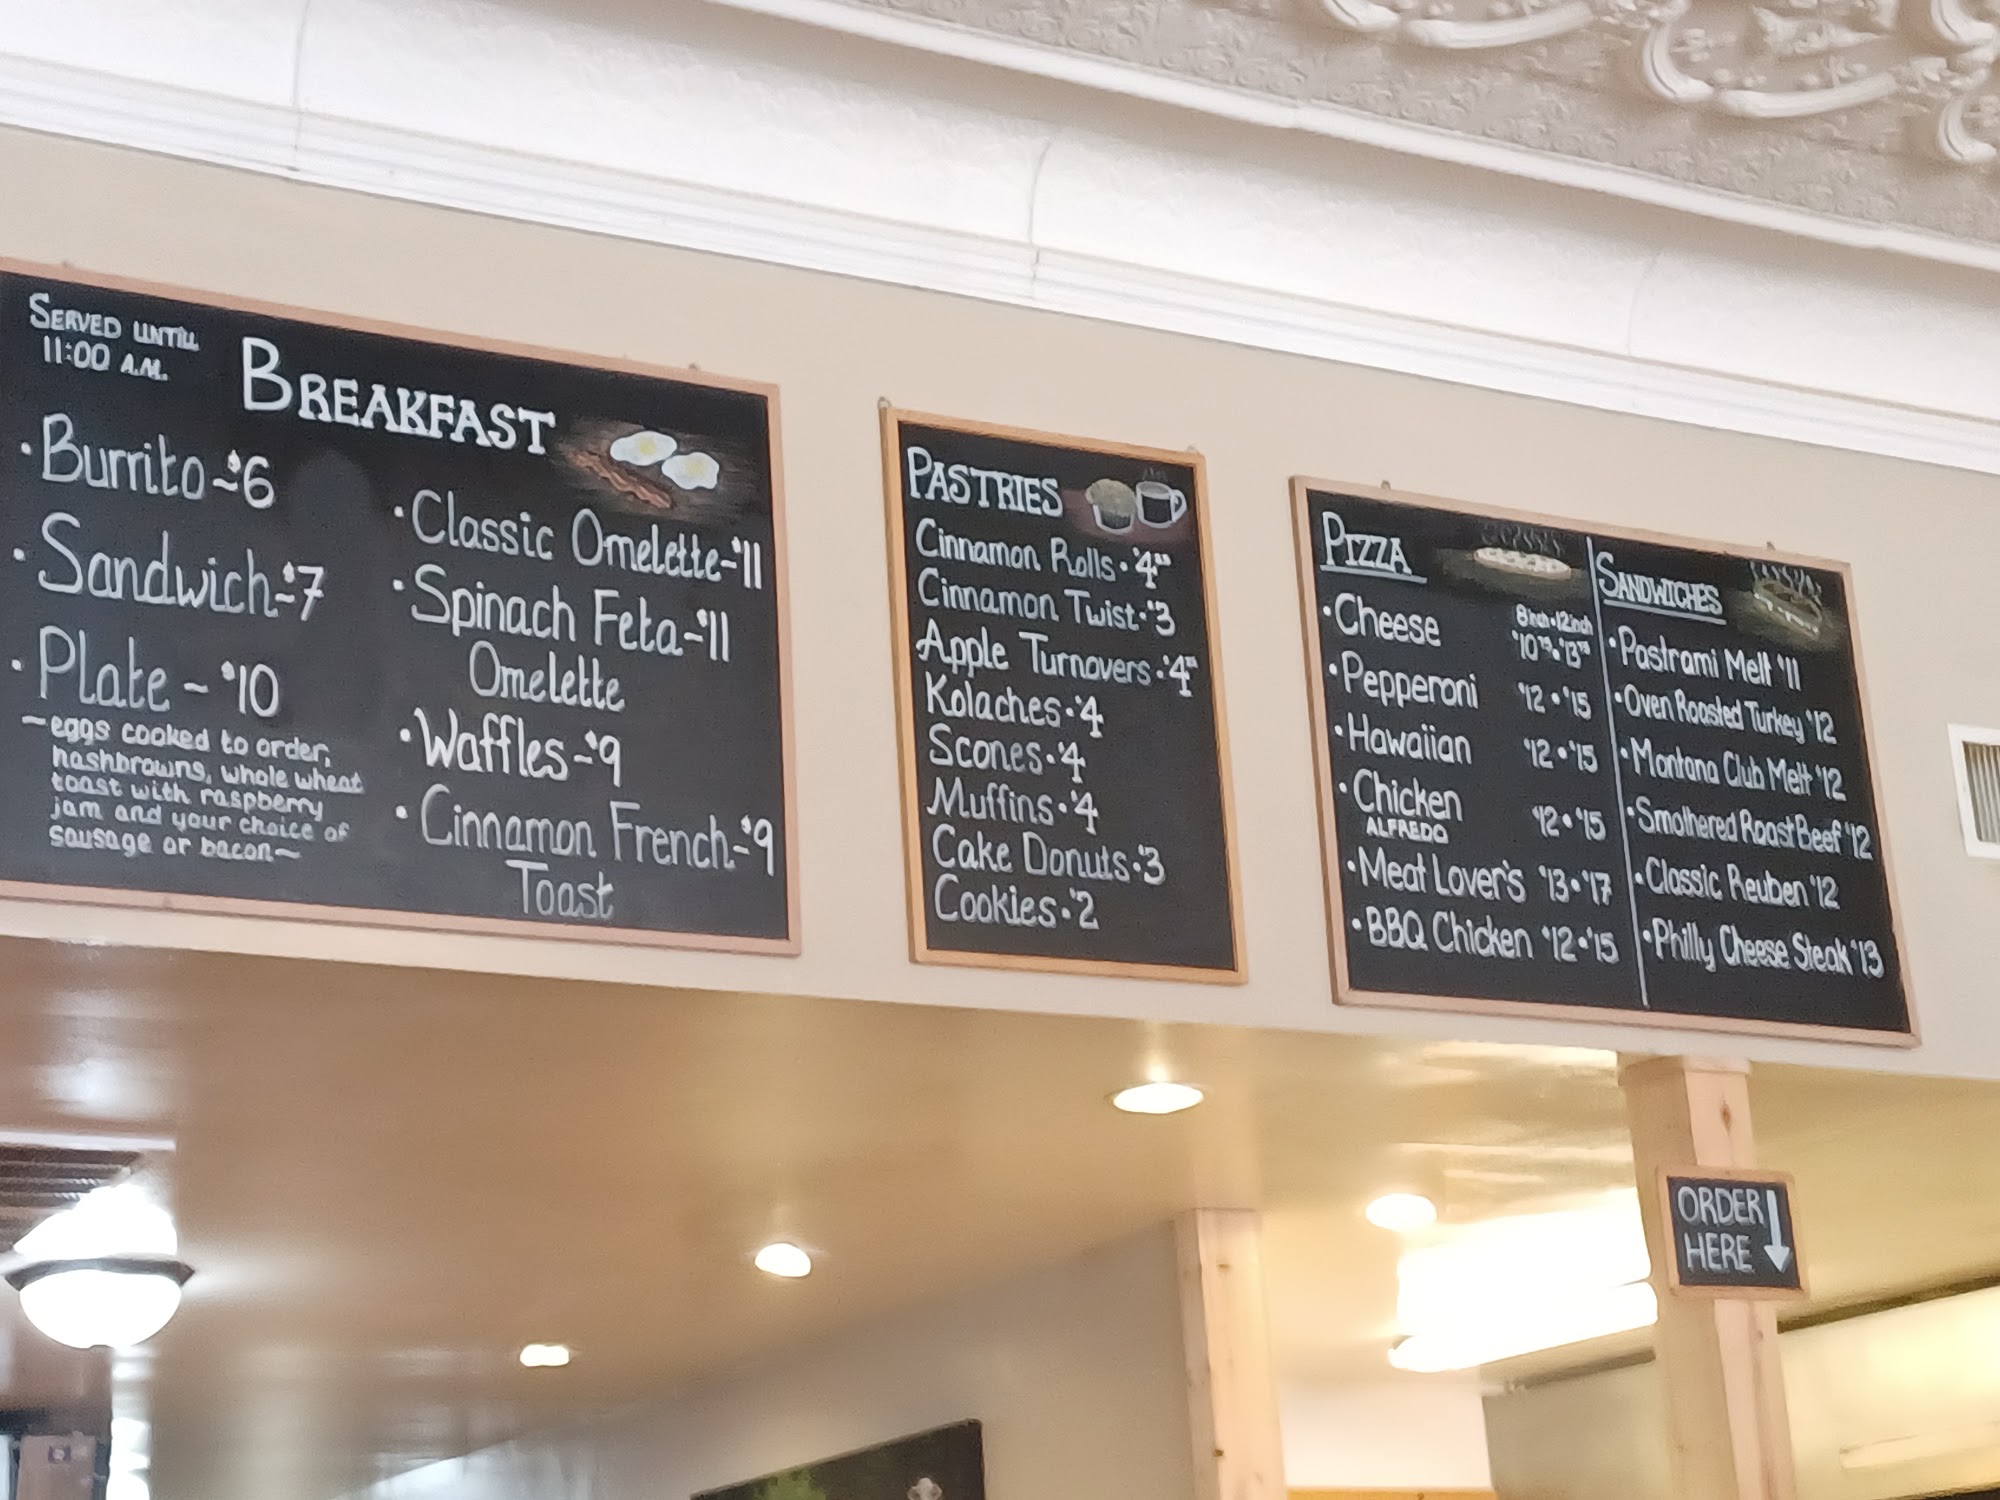 SERVED UNTILL
11:00 A.M.
BREAKFAST
• Burrito ~ $6
• Sandwich ~ $7
• Plate ~ $10
~eggs cooked to order,
hashbrowns, whole wheat
toast with raspberry
jam and your choice of
sausage or bacon~
• Classic Omelette - $11
• Spinach Feta ~ $11
Omelette
• Waffles ~ $9
• Cinnamon French ~ $9
Toast
PASTRIES
Cinnamon Rolls • $4
Cinnamon Twist • $3
Apple Turnovers • $4
Kolaches • $4
Scones • $4
Muffins • $4
Cake Donuts • $3
Cookies • $2
PIZZA
8inch • 12inch
• Cheese $10 • $13
• Pepperoni $12 • $15
• Hawaiian $12 • $15
• Chicken $12 • $15
ALFREDO
• Meat Lover's $13 • $17
• BBQ Chicken $12 • $15
SANDWICHES
• Pastrami Melt $11
• Oven Roasted Turkey $12
• Montana Club Melt $12
• Smothered Roast Beef $12
• Classic Reuben $12
• Philly Cheese Steak $13
ORDER
HERE